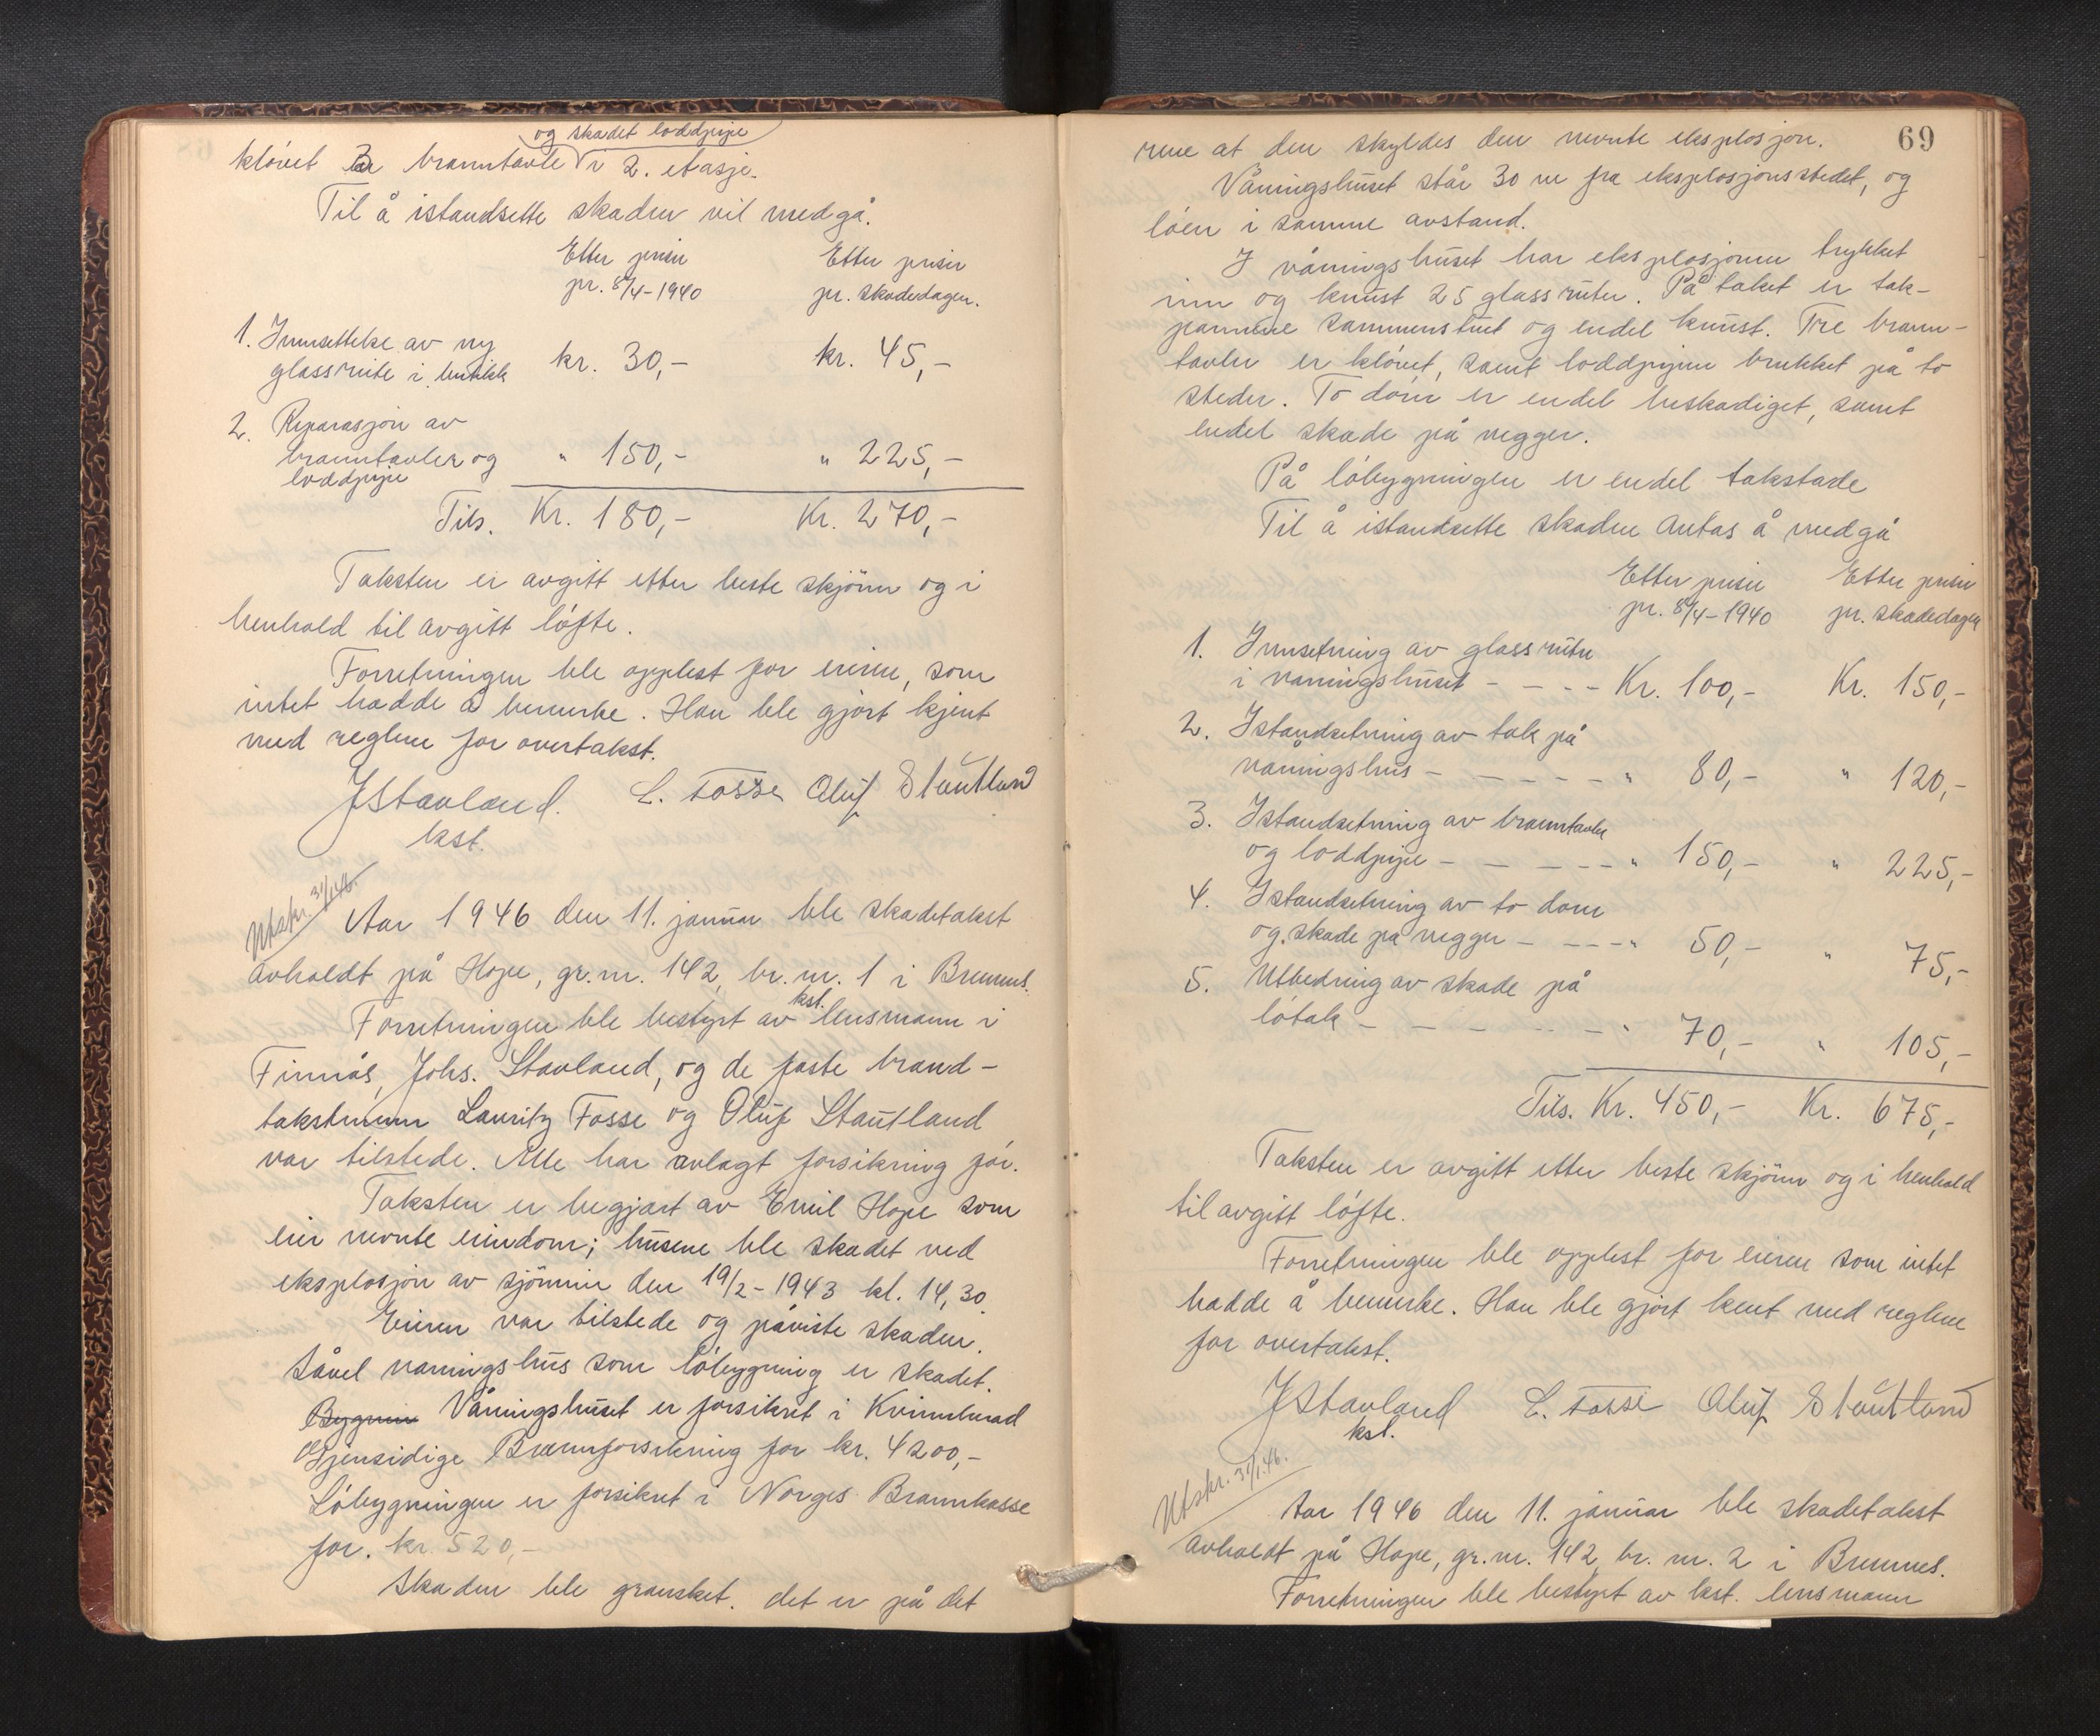 og skadet loddpipe
klövet 3 branntavle i 2. etasje.
Til å istandsette skaden vil medgå.
Etter priser Etter priser
pr. 8/4-1940 pr. skadedagen.
1. Innsettelse av ny
glassrute i butikk kr. 30,- kr. 45,-
2. Reparasjon av
branntavler og " 150,- " 225,-
loddpipe
Tils. Kr. 180,- Kr. 270,-
Taksten er avgitt etter beste skjönn og i
henhold til avgitt löfte.
Forretningen ble opplest for eieren, som
intet hadde å bemerke. Han ble gjort kjent
med reglene for overtakst.
JStavland. L. Fosse Oluf Stautland
kst.
Utskr. 31/1 46.
Aar 1946 den 11. januar ble skadetakst
avholdt på Hope, gr.nr. 142, br. nr. 1 i Bremnes.
kst.
Forretningen ble bestyrt av lensmann i
Finnås, Johs. Stavland, og de faste brand-
takstmenn Lauritz Fosse og Oluf Stautland
var tilstede. Alle har avlagt forsikring för.
Taksten er begjært av Emil Hope som
eier nevnte eiendom; husene ble skadet ved
eksplosjon av sjöminer den 19/2-1943 kl. 14,30.
Eieren var tilstede og påviste skaden.
Såvel vaningshus som löbygning er skadet.
Våningshuset er forsikret i Kvinnherad
Gjensidige Brannforsikring for kr. 4200,-
Löbygningen er forsikret i Norges Brannkasse
for. kr. 520,-
Skaden ble gransket. det er på det
69
rene at den skyldes den nevnte eksplosjon.
Våningshuset står 30 m fra eksplosjonsstedet, og
löen i samme avstand.
I våningshuset har eksplosjonen trykket
inn og knust 25 glassruter. På taket er tak-
pannene sammenstuet og endel knust. Tre brann-
tavler er klövet, samt loddpipen brukket på to
steder. To dörer er endel beskadiget, samt
endel skade på vegger.
På löbygningen er endel takskade
Til å istandsette skaden antas å medgå
Etter priser Etter priser
pr. 8/4-1940 pr. skadedagen
1. Innsetning av glassruter
i vaningshuset - - - - Kr. 100,- Kr. 150,-
2. Istandsetning av tak på
våningshus - - - - - " 80,- " 120,-
3. Istandsetning av branntavler
og loddpipe - - - - - " 150,- " 225,-
4. Istandsetning av to dörer
og skade på vegger - - - - " 50,- " 75,-
5. Utbedring av skade på
lötak - - - - - - " 70,- " 105,-
Tils. Kr. 450,- Kr. 675,-
Taksten er avgitt etter beste skjönn og i henhold
til avgitt löfte.
Forretningen ble opplest for eieren som intet
hadde å bemerke. Han ble gjort kent med reglene
for overtakst.
JStavland L. Fosse Oluf Stautland
kst.
Utskr. 31/1.46.
Aar 1946 den 11. januar ble skadetakst
avholdt på Hope, gr.nr. 142, br. nr. 2 i Bremnes.
Forretningen ble bestyrt av kst. lensmann